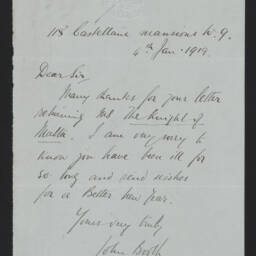 118 Castellane mansions W. 9.
4th Jan. 1919.
Dear Sir,
Many thanks for your letter
returning MS The Knight of
Malta. I am very sorry to
know you have been ill for
so long and send wishes
for a Better New Year.
Yours very truly,
John Booth